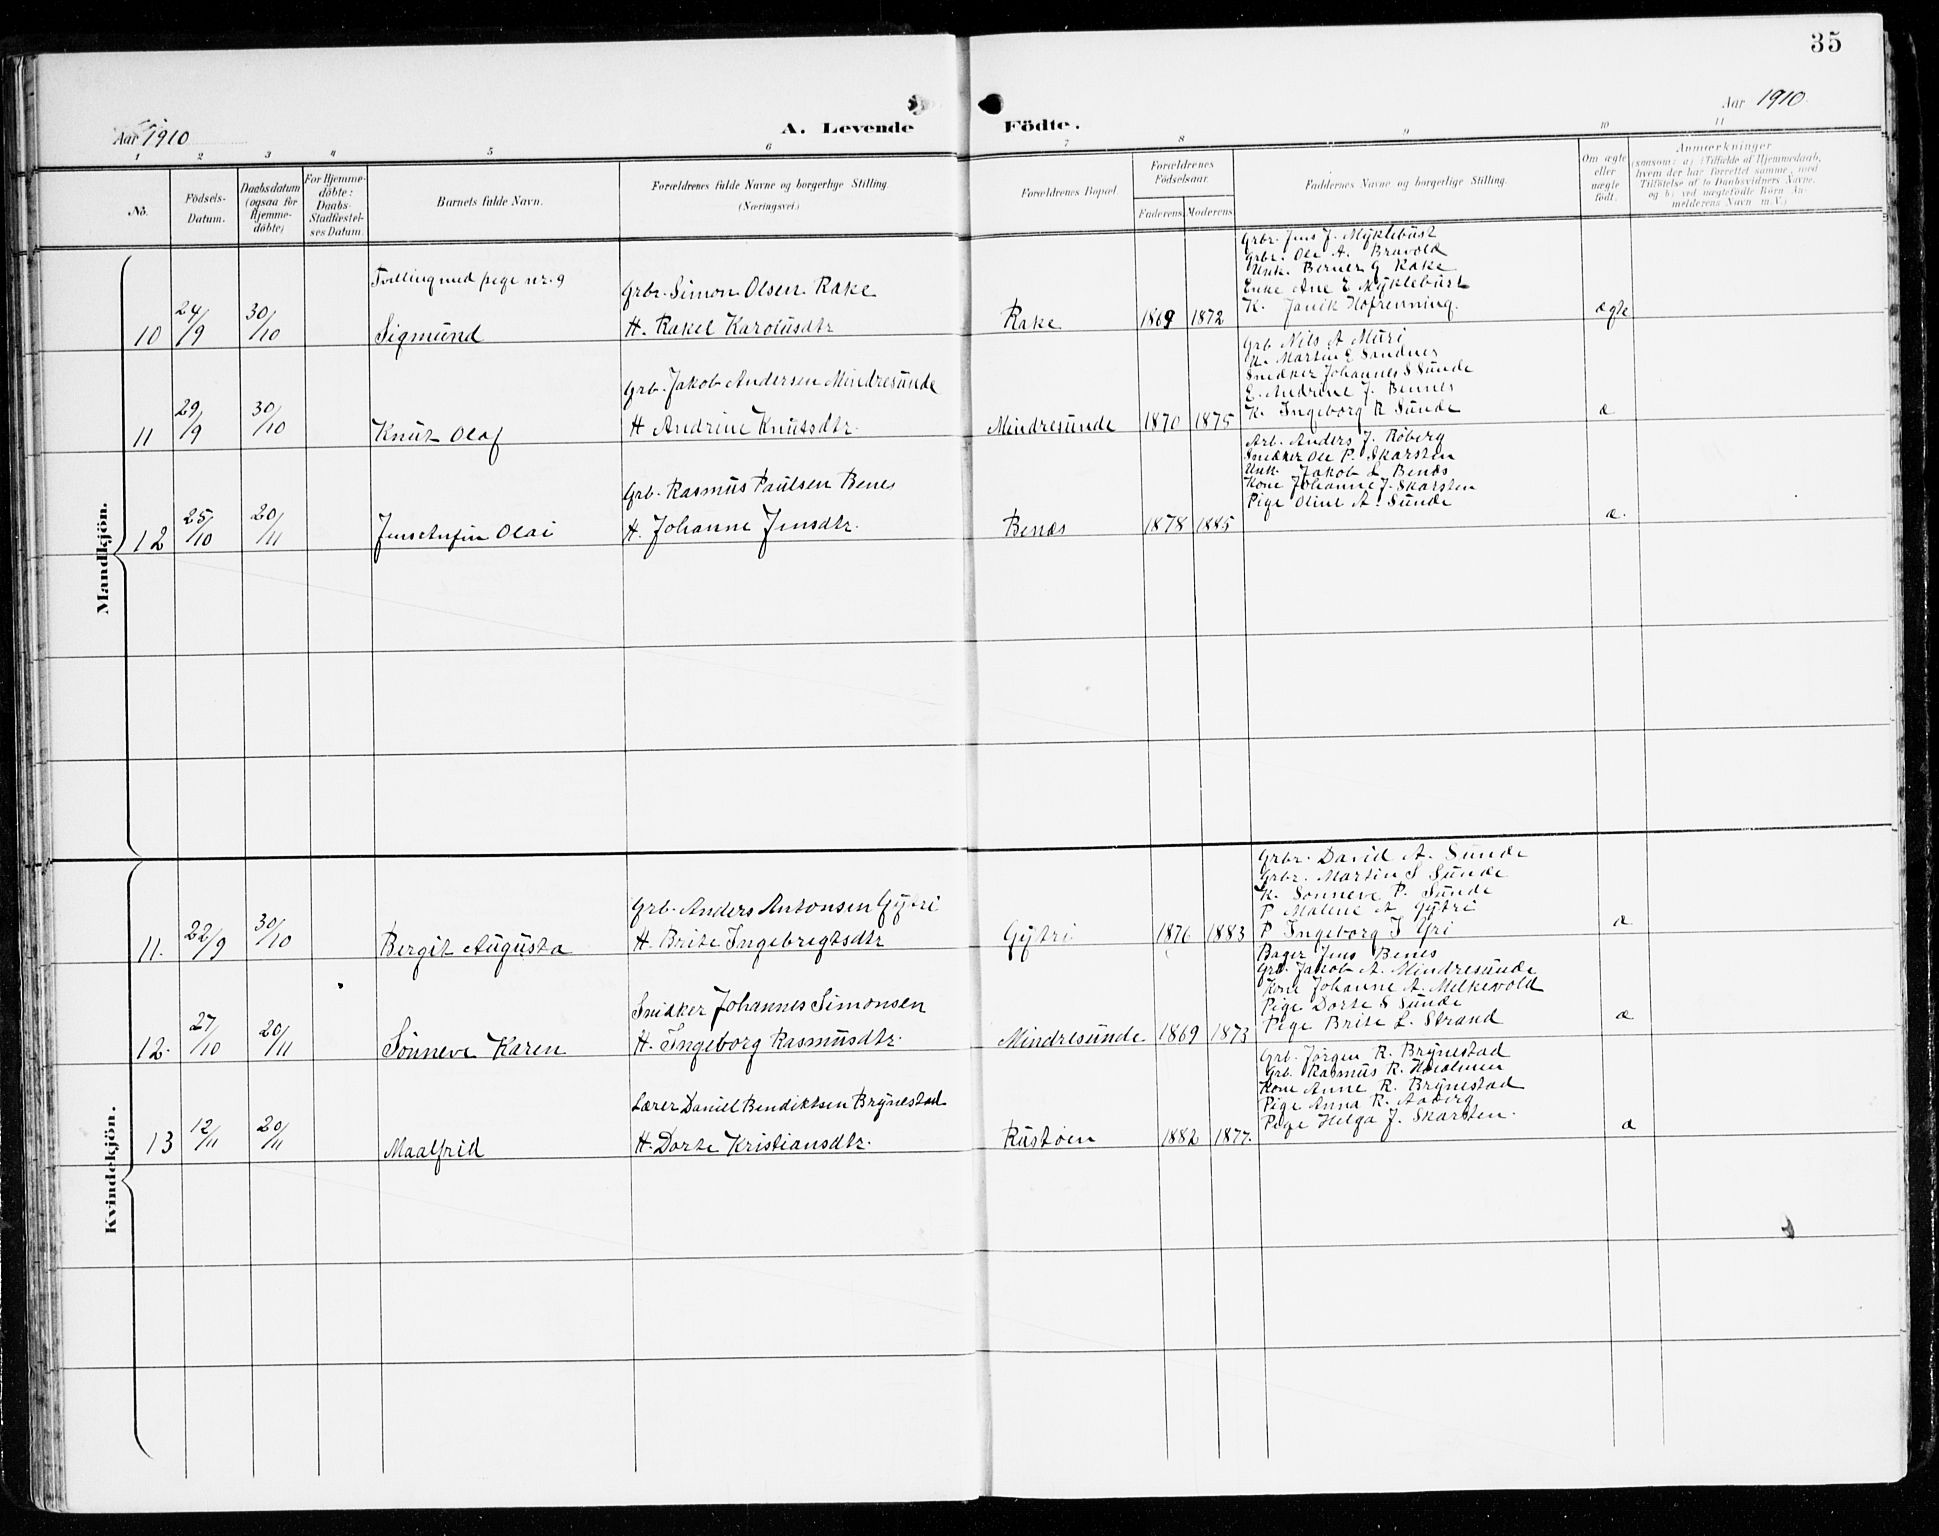 35
Aar 1910
A. Levende Födte.
Aar 1910.
1 2 3 4 5 6 7 8 9 10 11
No.
Födsels-
Datum.
Daabsdatum
(ogsaa for
Hjemme-
döbte)
For Hjemme-
döbte:
Daabs-
Stadfæstel-
ses Datum.
Barnets fulde Navn.
Forældrenes fulde Navne og borgerlige Stilling.
(Næringsvei.)
Forældrenes Bopæl.
Forældrenes
Födselsaar.
Faderens Moderens
Faddernes Navne og borgerlige Stilling.
Om ægte
eller
uægte
födt.
Anmærkninger
(saasom: a) i Tilfælde af Hjemmedaab,
hvem der har forrettet samme, med
Tilföielse af to Daabsvidners Navne,
og b) ved uægtefödte Börn An-
melderens Navn m.V.)
Mandkjön.
10 24/9 30/10
Tvilling med pige nr. 9
Sigmund
Grbr. Simon Olsen Rake
H. Rakel Karolusdtr
Rake 1869 1872
Grbr. Jens J. Myklebust
Grbr. Ole A. Bravold
Unk. Berner G Rake
Enke Ane E Myklebust
K. Janik Hofrenning.
ægte
11 29/9 30/10
Knut Olaf
Grb. Jakob Andersen Mindresunde
H Andrine Knutsdtr.
Mindresunde 1870 1875
Grb Nils A Muri
K. Martin E Sandnes
Snedker Johannes S Sunde
E. Andrine J. Bennes
K. Ingeborg R Sunde
æ
12 25/10 20/11
Olai
Grb. Rasmus Paulsen Benes
H. Johanne Jensdtr.
Benæs 1878 1885
Arb. Anders J. Röberg
Snedker Ole P. Skarsten
Unk. Jakob L Benæs
Kone Johanne J. Skarsten
Pige Oline A. Sunde
æ.
Kvindekjön.
11. 22/9 30/10
Bergit Augusta
Grb. Anders Antonsen Gytri
H. Brite Ingebregtsdtr
Gytri 1876 1883
Grbr. David A. Sunde
Grbr. Martin S Sunde
K. Sönneve P. Sunde
P Malene A Gytri
P Ingeborg I Gri
æ
12. 27/10 20/11
Sönneve Karen
Snidker Johannes Simonsen
H. Ingeborg Rasmusdtr.
Mindresunde. 1869 1873
Bager Jens Benes
Grb. Jakob A. Mindresunde
Kone Johanne A. Melkevold
Pige Dorte S Sunde
Pige Brite L. Strand
æ
13 12/11 20/11
Maalfrid
Lærer Daniel Bendiktsen Brynestad
H. Dorte Kristiansdtr.
Rustöen 1882 1877.
Grb. Jörgen R. Brynestad
Grb. Rasmus R.
Kone Anne R. Brynestad
Pige Anna R. Aaberg
Pige Helga J. Skarsten.
æ